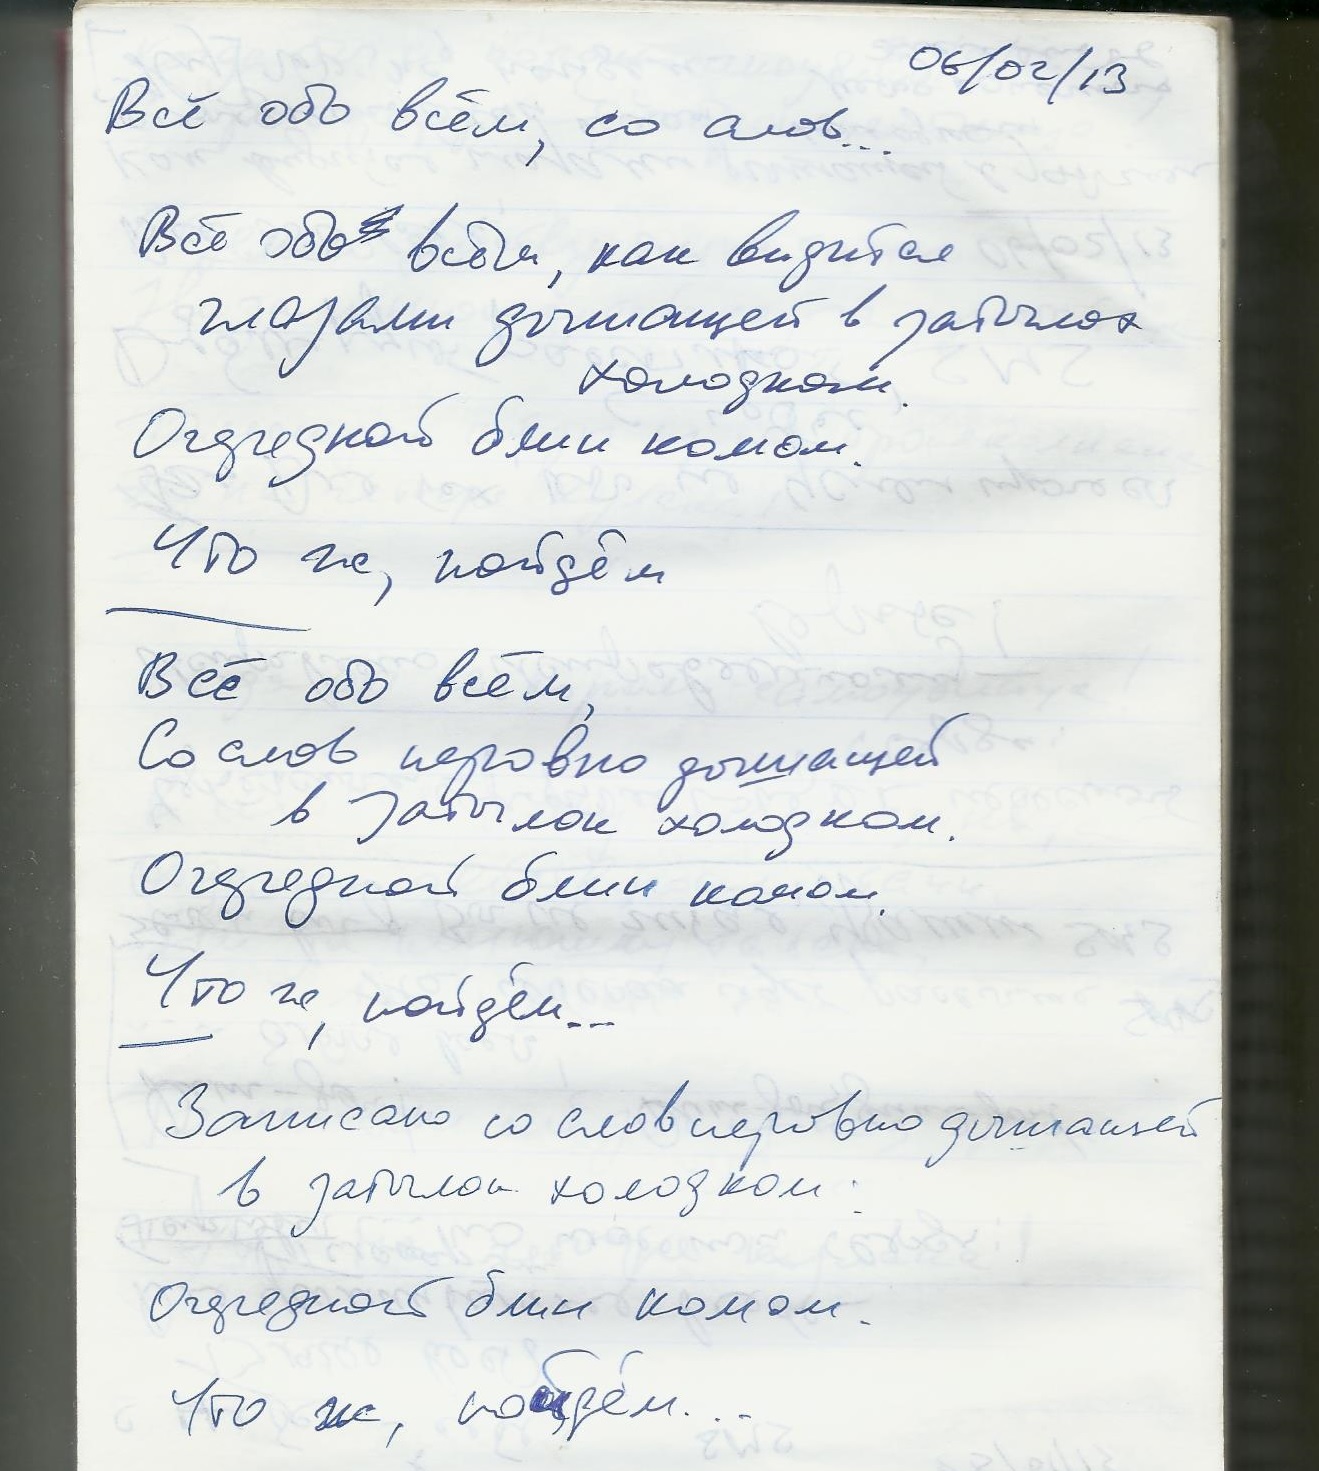 06/02/13
Всё обо всём, со слов...
Всё обо всём, как видится
глазами дышащей в затылок
холодком.
Очередной блин комом.
Что же, пойдём
Всё обо всём,
Со слов неровно дышащей
в затылок холодком.
Очередной блин комом.
Что же, пойдём...
Записано со слов неровно дышащей
в затылок холодком:
Очередной блин комом.
Что же, пойдём...